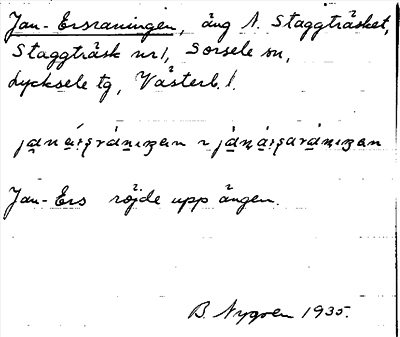 Jan-Ersraningen, äng N. Staggträsket,
Staggträsk nr 1, Sorsele sn,
Lycksele tg, Västerb. l.
Jan-Ers röjde upp ängen.
B. Nygren 1935.